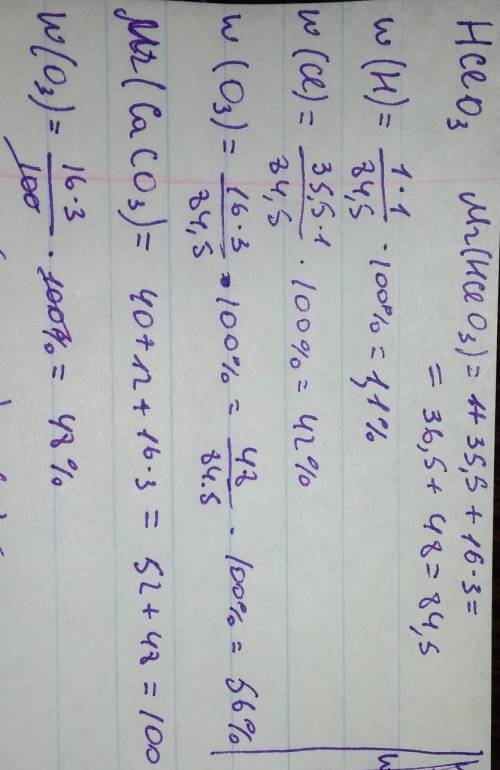 HClO₃ Mr(HClO₃) = 1+35,5+16·3=
= 36,5+48=84,5
w(H)= 1·1/84,5 · 100% = 1,1%
w(Cl)= 35,5·1/84,5 · 100% = 42%
w(O₃)= 16·3/84,5 · 100% = 48/84.5 · 100% = 56%
Mr(CaCO₃)= 40+12+16·3 = 52+48=100
w(O₃)= 16·3/100 · 100% = 48%